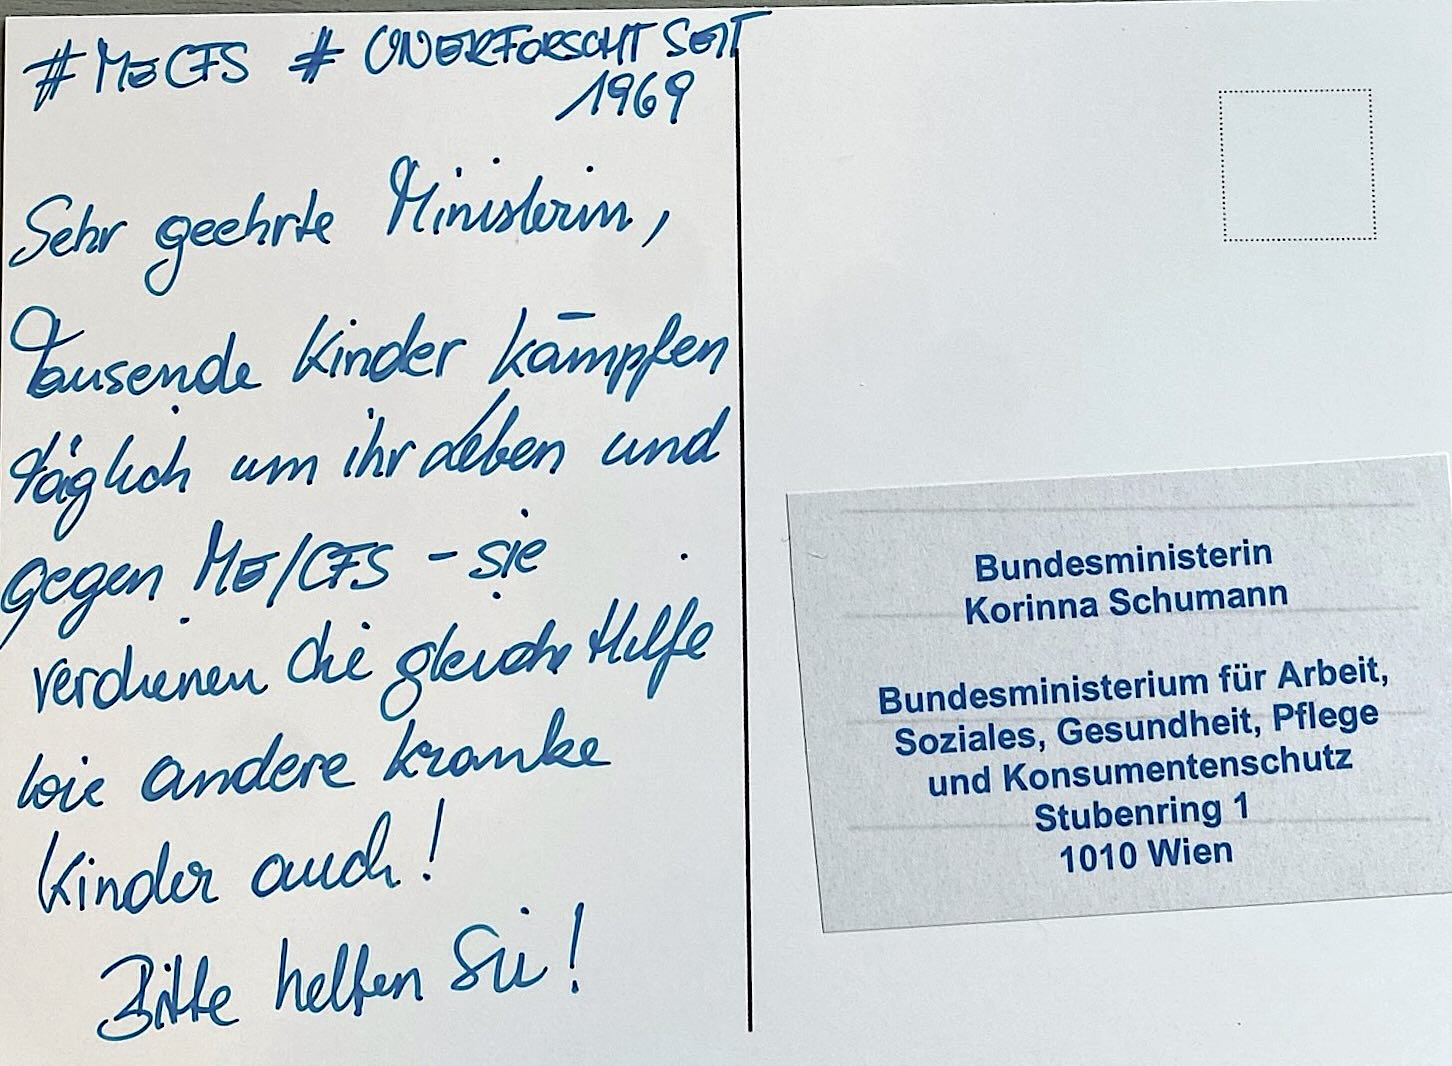 #MECFS #UNERFORSCHT SEIT
1969
Sehr geehrte Ministerin,
Tausende Kinder kämpfen
täglich um ihr Leben und
gegen ME/CFS - sie
verdienen die gleiche Hilfe
wie andere kranke
Kinder auch!
Bitte helfen Sie!
Bundesministerin
Korinna Schumann
Bundesministerium für Arbeit,
Soziales, Gesundheit, Pflege
und Konsumentenschutz
Stubenring 1
1010 Wien